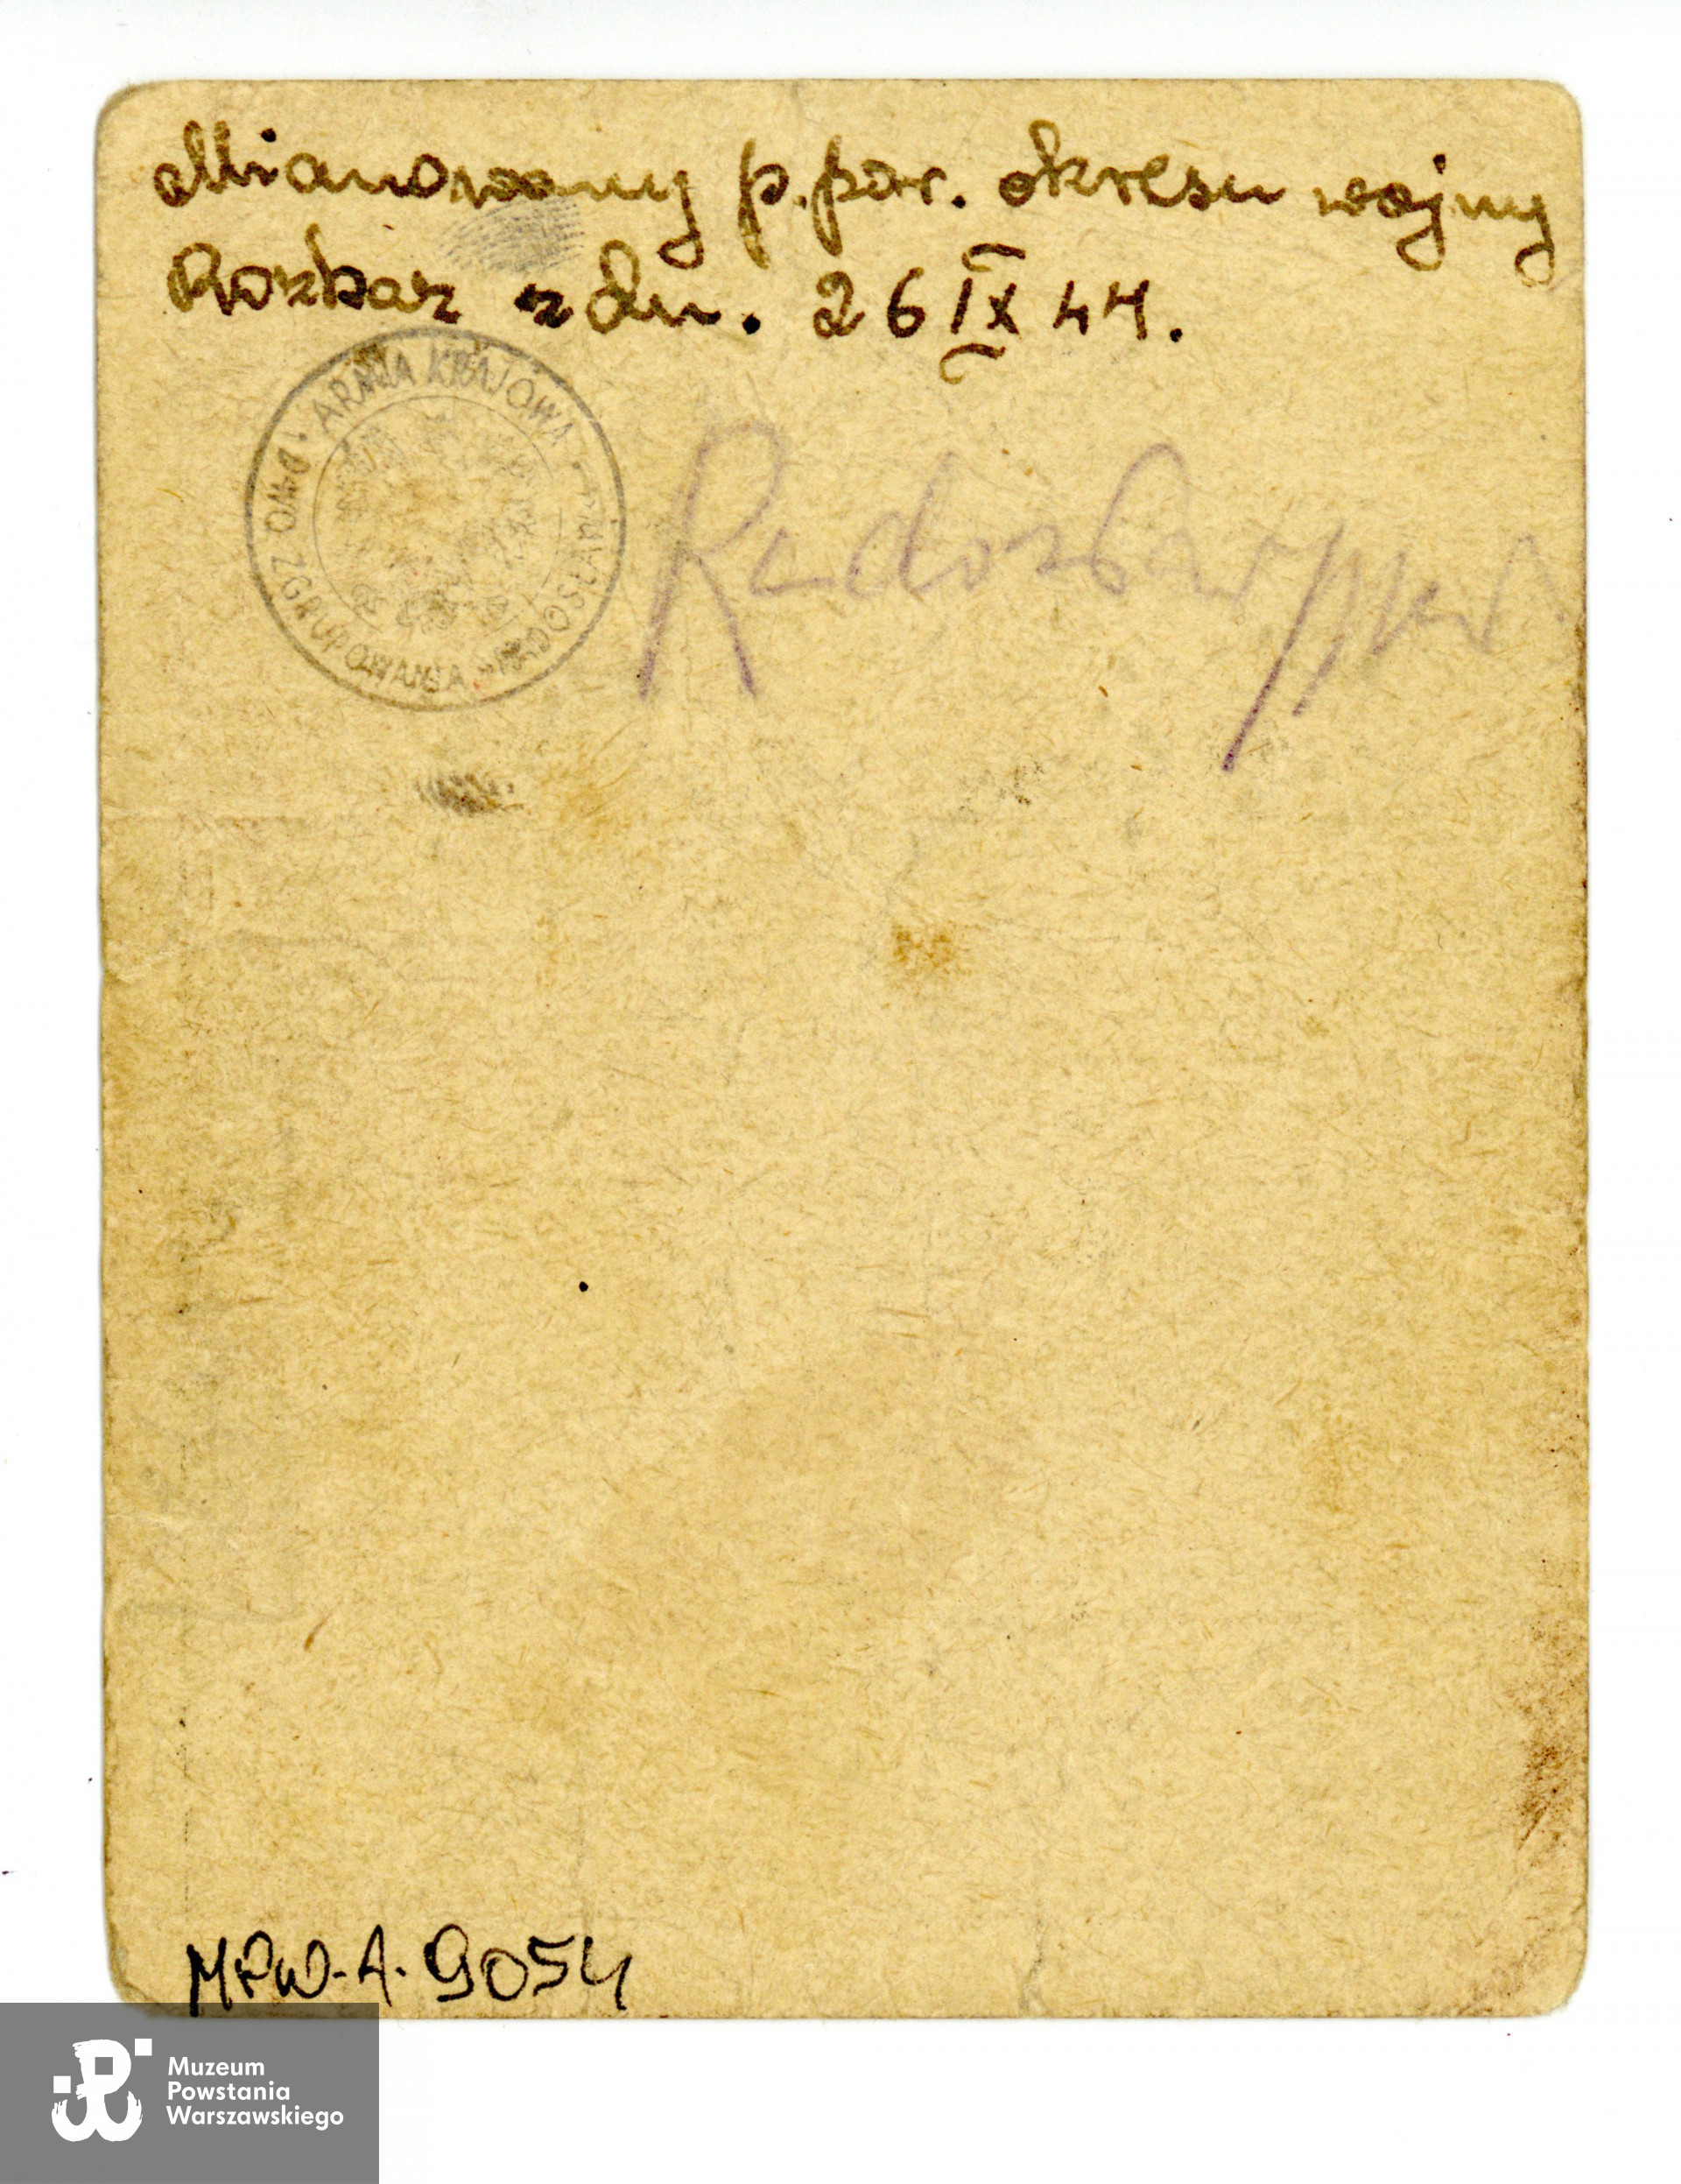 Mianowany p.por. okresu wojny
Rozkaz z dn. 26 IX 44.
ARMIA KRAJOWA
D-WO ZGRUPOWANIA
Radosław ppłk
MPW-A-9054
Muzeum
Powstania
Warszawskiego